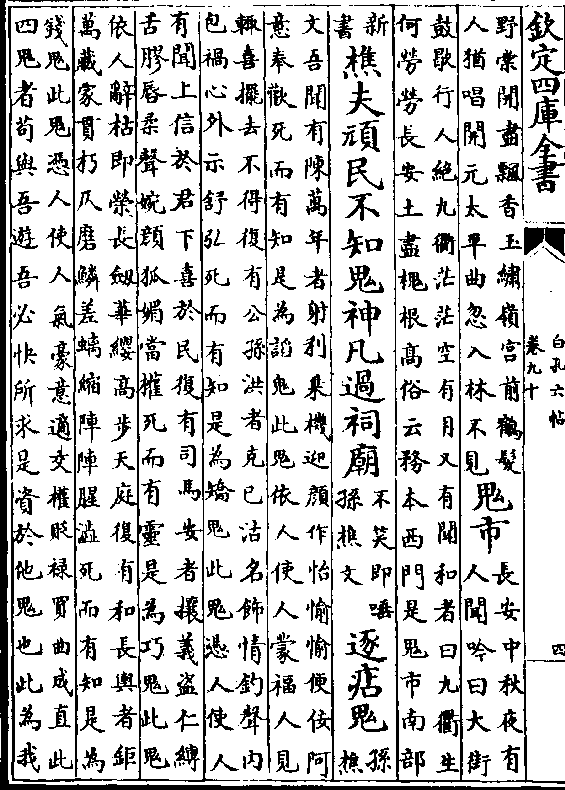 欽定四庫全書
白孔六帖
卷九十
四
野棠開盡飄香玉繡嶺宮前鶴髮
人猶唱開元太平曲忽入林不見
鬼市
長安中秋夜有
人聞吟曰大街
鼓歇行人絶九衢茫茫空有月又有聞和者曰九衢生
何勞勞長安土盡槐根高俗云務本西門是鬼市南部
新
書
樵夫頑民不知鬼神凡過祠廟
不笑即唾
孫樵文
逐痁鬼
孫
樵
文吾聞有陳萬年者射利乘機迎顔作怡愉愉便佞阿
意奉歡死而有知是為諂鬼此鬼依人使人蒙福人見
輒喜擺去不得復有公孫洪者克已沽名飾情釣聲内
包禍心外示舒弘死而有知是為矯鬼此鬼憑人使人
有聞上信於君下喜於民復有司馬安者攘義盜仁縛
舌膠唇柔聲婉顔狐媚當權死而有靈是為巧鬼此鬼
依人辭枯即榮長劔華纓高步天庭復有和長輿者鉅
萬藏家貫朽仄磨鱗差螭縮陣陣腥澁死而有知是為
錢鬼此鬼憑人使人氣豪意適交權貶禄買曲成直此
四鬼者苟與吾遊吾必快所求是資於他鬼也此為我